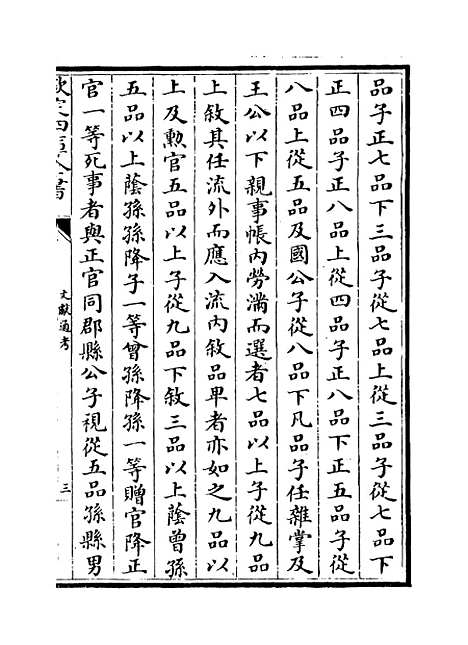 品子正七品下三品子從七品上從三品子從七品下
正四品子正八品上從四品子正八品下正五品子從
八品上從五品及國公子從八品下凡品子任雜掌及
王公以下親事帳内勞滿而選者七品以上子從九品
上敘其任流外而應入流内敘品卑者亦如之九品以
上及勲官五品以上子從九品下敘三品以上蔭曾孫
五品以上蔭孫孫降子一等曾孫降孫一等贈官降正
官一等死事者與正官同郡縣公子視從五品孫縣男
欽定四庫全書
文獻通考
三